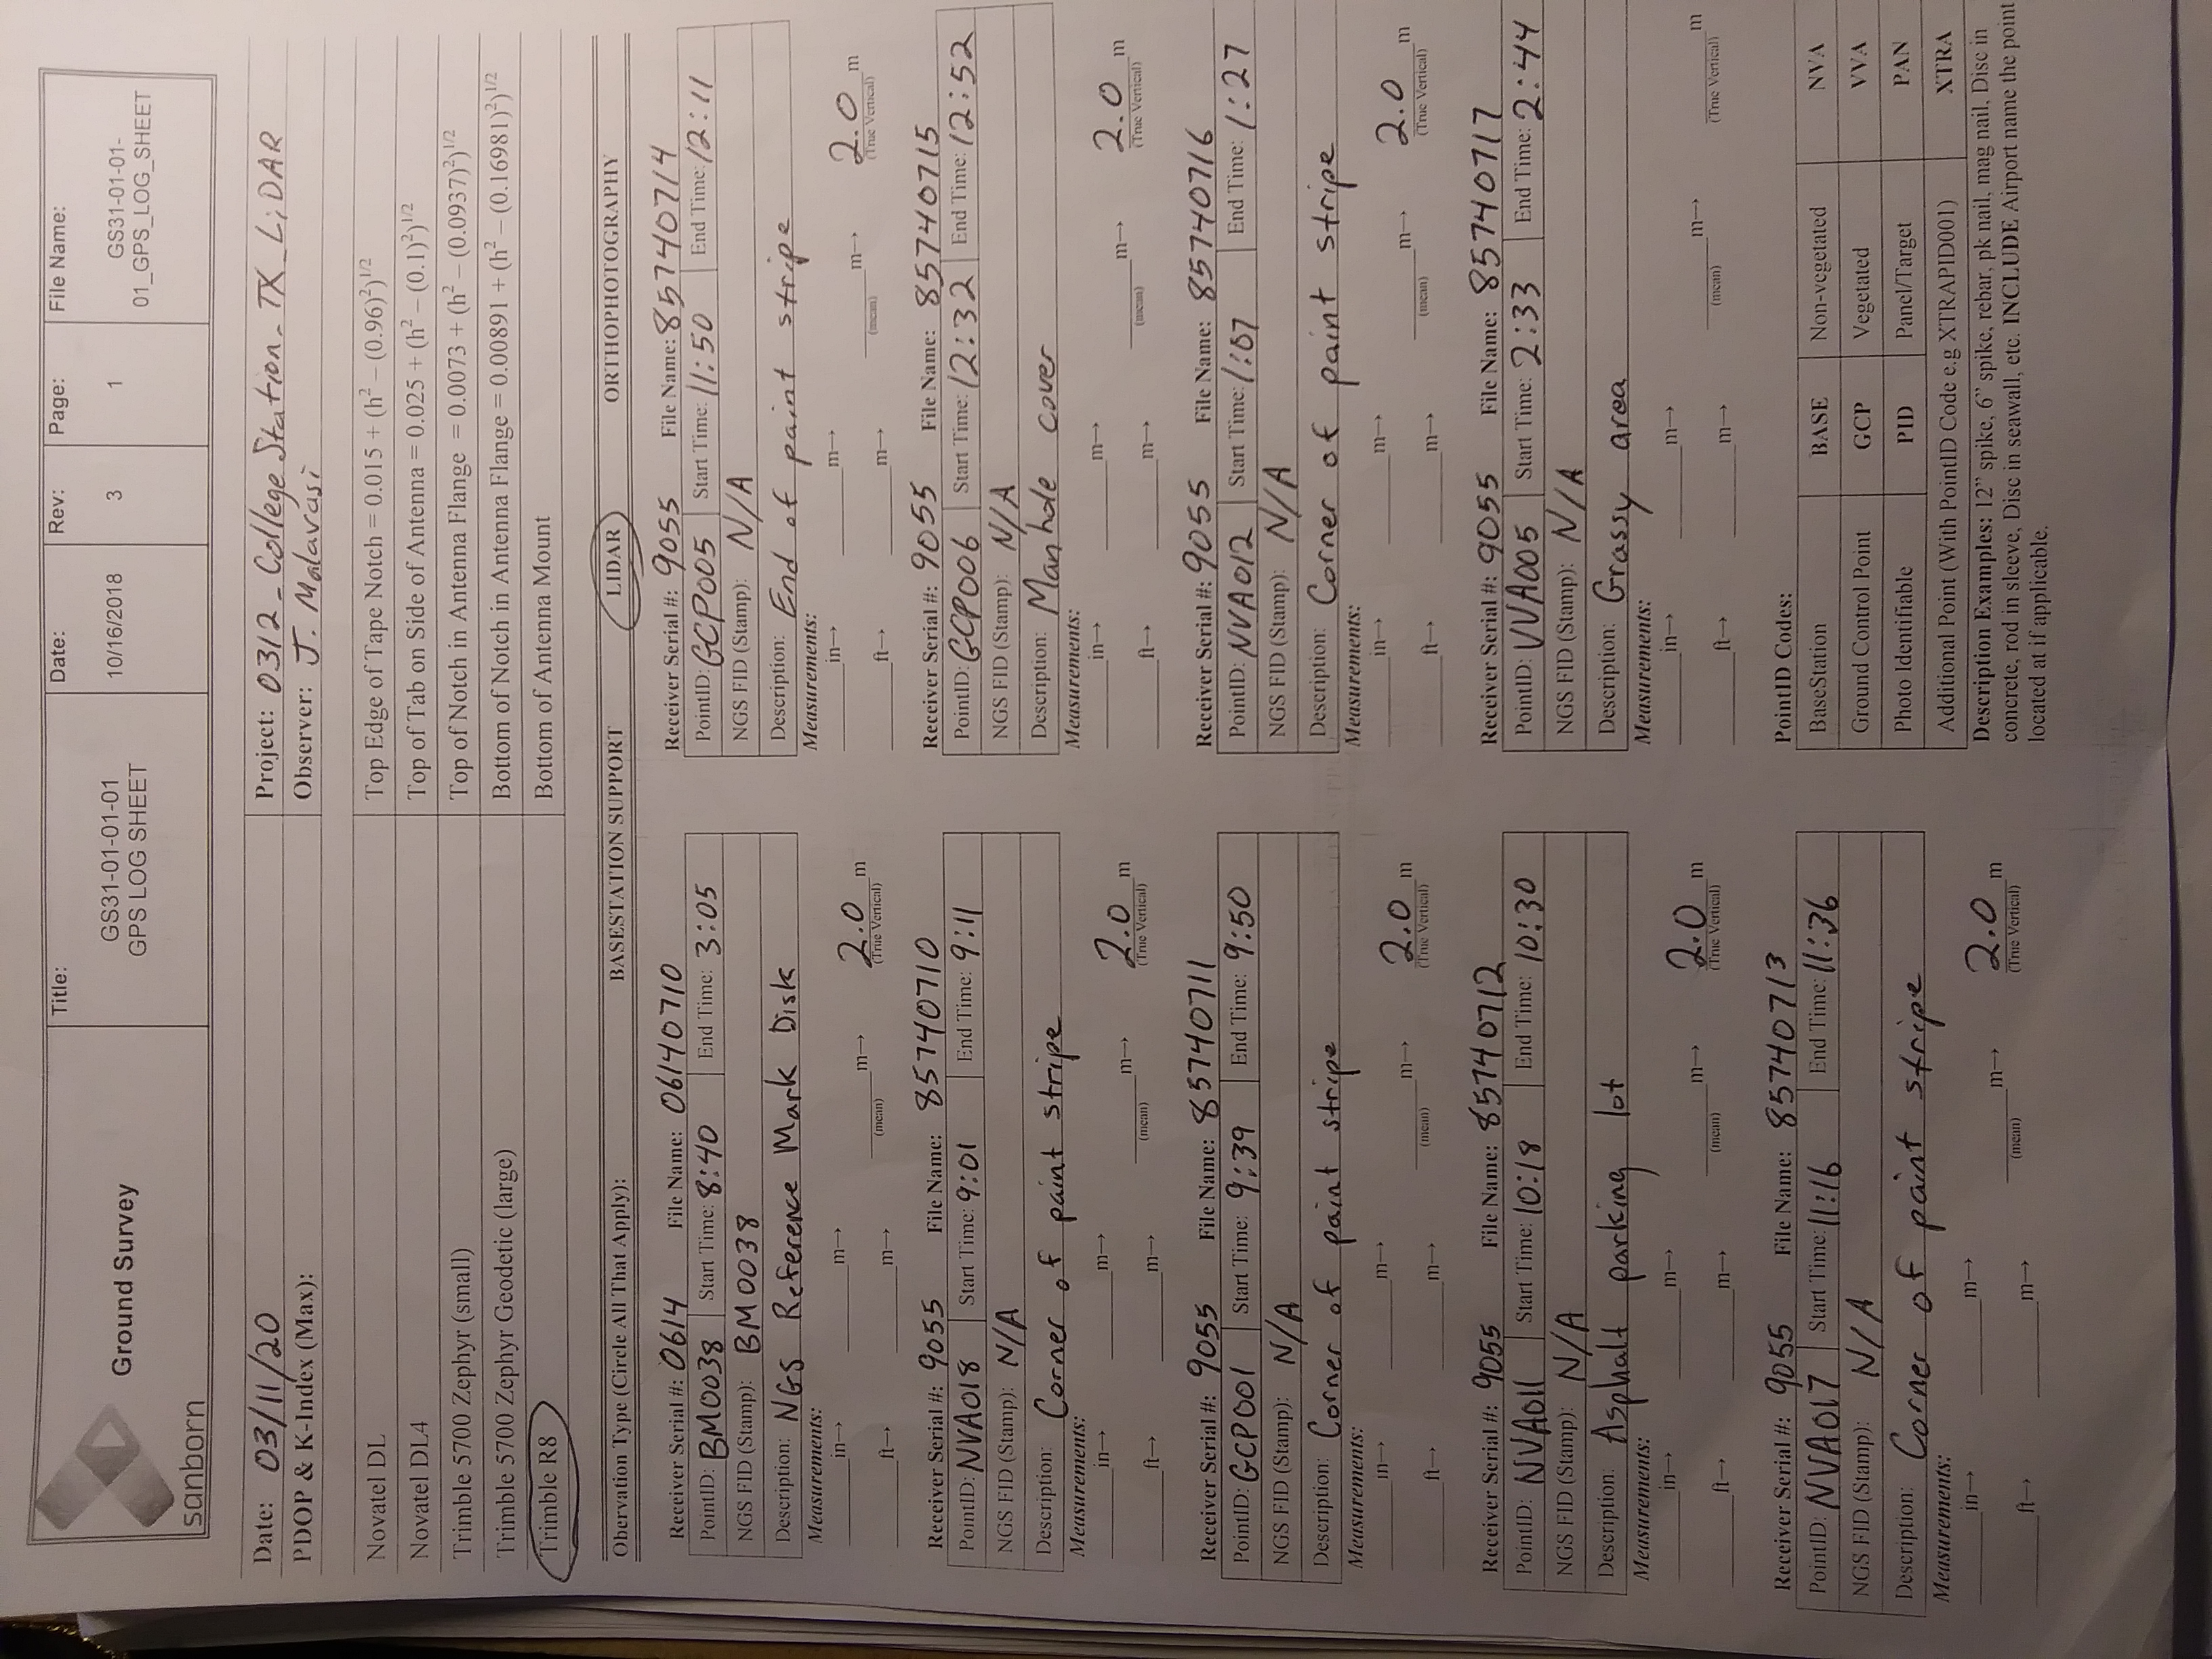 sanborn
Ground Survey
Title:
GS31-01-01-01
GPS LOG SHEET
Date:
10/16/2018
Rev:
3
Page:
1
File Name:
GS31-01-01-
01_GPS_LOG_SHEET
Date: 03/11/20
Project: 0312_College Station_TX_LiDAR
PDOP & K-Index (Max):
Observer: J. Malavasi
Novatel DL Top Edge of Tape Notch = 0.015 + (h² – (0.96)²)^1/2
Novatel DL4 Top of Tab on Side of Antenna = 0.025 + (h² – (0.1)²)^1/2
Trimble 5700 Zephyr (small) Top of Notch in Antenna Flange = 0.0073 + (h² – (0.0937)²)^1/2
Trimble 5700 Zephyr Geodetic (large) Bottom of Notch in Antenna Flange = 0.00891 + (h² – (0.16981)²)^1/2
Trimble R8 Bottom of Antenna Mount
Obervation Type (Circle All That Apply): BASESTATION SUPPORT LIDAR ORTHOPHOTOGRAPHY
Receiver Serial #: 0614 File Name: 06140710
PointID: BM0038 Start Time: 8:40 End Time: 3:05
NGS FID (Stamp): BM0038
Description: NGS Reference Mark Disk
Measurements:
___in→ ___m→ ___m→ 2.0 m
___ft→ ___m→ (mean) (True Vertical)
Receiver Serial #: 9055 File Name: 85740710
PointID: NVA018 Start Time: 9:01 End Time: 9:11
NGS FID (Stamp): N/A
Description: Corner of paint stripe
Measurements:
___in→ ___m→ ___m→ 2.0 m
___ft→ ___m→ (mean) (True Vertical)
Receiver Serial #: 9055 File Name: 85740711
PointID: GCP001 Start Time: 9:39 End Time: 9:50
NGS FID (Stamp): N/A
Description: Corner of paint stripe
Measurements:
___in→ ___m→ ___m→ 2.0 m
___ft→ ___m→ (mean) (True Vertical)
Receiver Serial #: 9055 File Name: 85740712
PointID: NVA011 Start Time: 10:18 End Time: 10:30
NGS FID (Stamp): N/A
Description: Asphalt parking lot
Measurements:
___in→ ___m→ ___m→ 2.0 m
___ft→ ___m→ (mean) (True Vertical)
Receiver Serial #: 9055 File Name: 85740713
PointID: NVA017 Start Time: 11:16 End Time: 11:36
NGS FID (Stamp): N/A
Description: Corner of paint stripe
Measurements:
___in→ ___m→ ___m→ 2.0 m
___ft→ ___m→ (mean) (True Vertical)
Receiver Serial #: 9055 File Name: 85740714
PointID: GCP005 Start Time: 11:50 End Time: 12:11
NGS FID (Stamp): N/A
Description: End of paint stripe
Measurements:
___in→ ___m→ ___m→ 2.0 m
___ft→ ___m→ (mean) (True Vertical)
Receiver Serial #: 9055 File Name: 85740715
PointID: GCP006 Start Time: 12:32 End Time: 12:52
NGS FID (Stamp): N/A
Description: Manhole cover
Measurements:
___in→ ___m→ ___m→ 2.0 m
___ft→ ___m→ (mean) (True Vertical)
Receiver Serial #: 9055 File Name: 85740716
PointID: NVA012 Start Time: 1:07 End Time: 1:27
NGS FID (Stamp): N/A
Description: Corner of paint stripe
Measurements:
___in→ ___m→ ___m→ 2.0 m
___ft→ ___m→ (mean) (True Vertical)
Receiver Serial #: 9055 File Name: 85740717
PointID: VVA005 Start Time: 2:33 End Time: 2:44
NGS FID (Stamp): N/A
Description: Grassy area
Measurements:
___in→ ___m→ ___m→ ___m
___ft→ ___m→ (mean) (True Vertical)
PointID Codes:
BaseStation BASE Non-vegetated NVA
Ground Control Point GCP Vegetated VVA
Photo Identifiable PID Panel/Target PAN
Additional Point (With PointID Code e.g XTRAPID001) XTRA
Description Examples: 12" spike, 6" spike, rebar, pk nail, mag nail, Disc in
concrete, rod in sleeve, Disc in seawall, etc. INCLUDE Airport name the point
located at if applicable.